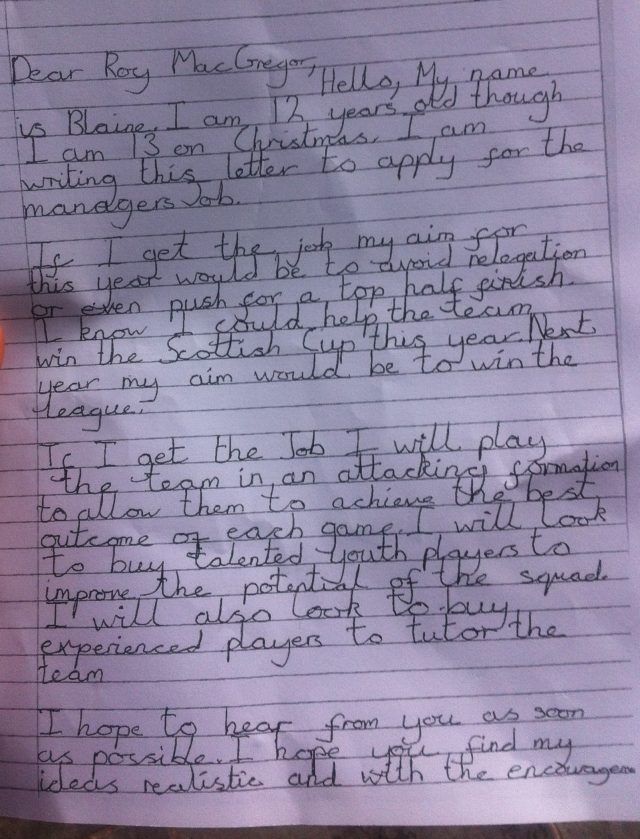 Dear Roy MacGregor,
Hello, My name
is Blaine. I am 12 years old though
I am 13 on Christmas. I am
writing this letter to apply for the
managers Job.
If I get the job my aim for
this year would be to avoid relegation
or even push for a top half finish.
I know I could help the team
win the Scottish Cup this year. Next
year my aim would be to win the
league.
If I get the Job I will play
the team in an attacking formation
to allow them to achieve the best
outcome of each game. I will look
to buy talented youth players to
improve the potential of the squad.
I will also look to buy
experienced players to tutor the
team
I hope to hear from you as soon
as possible. I hope you find my
ideas realistic and with the encouragem